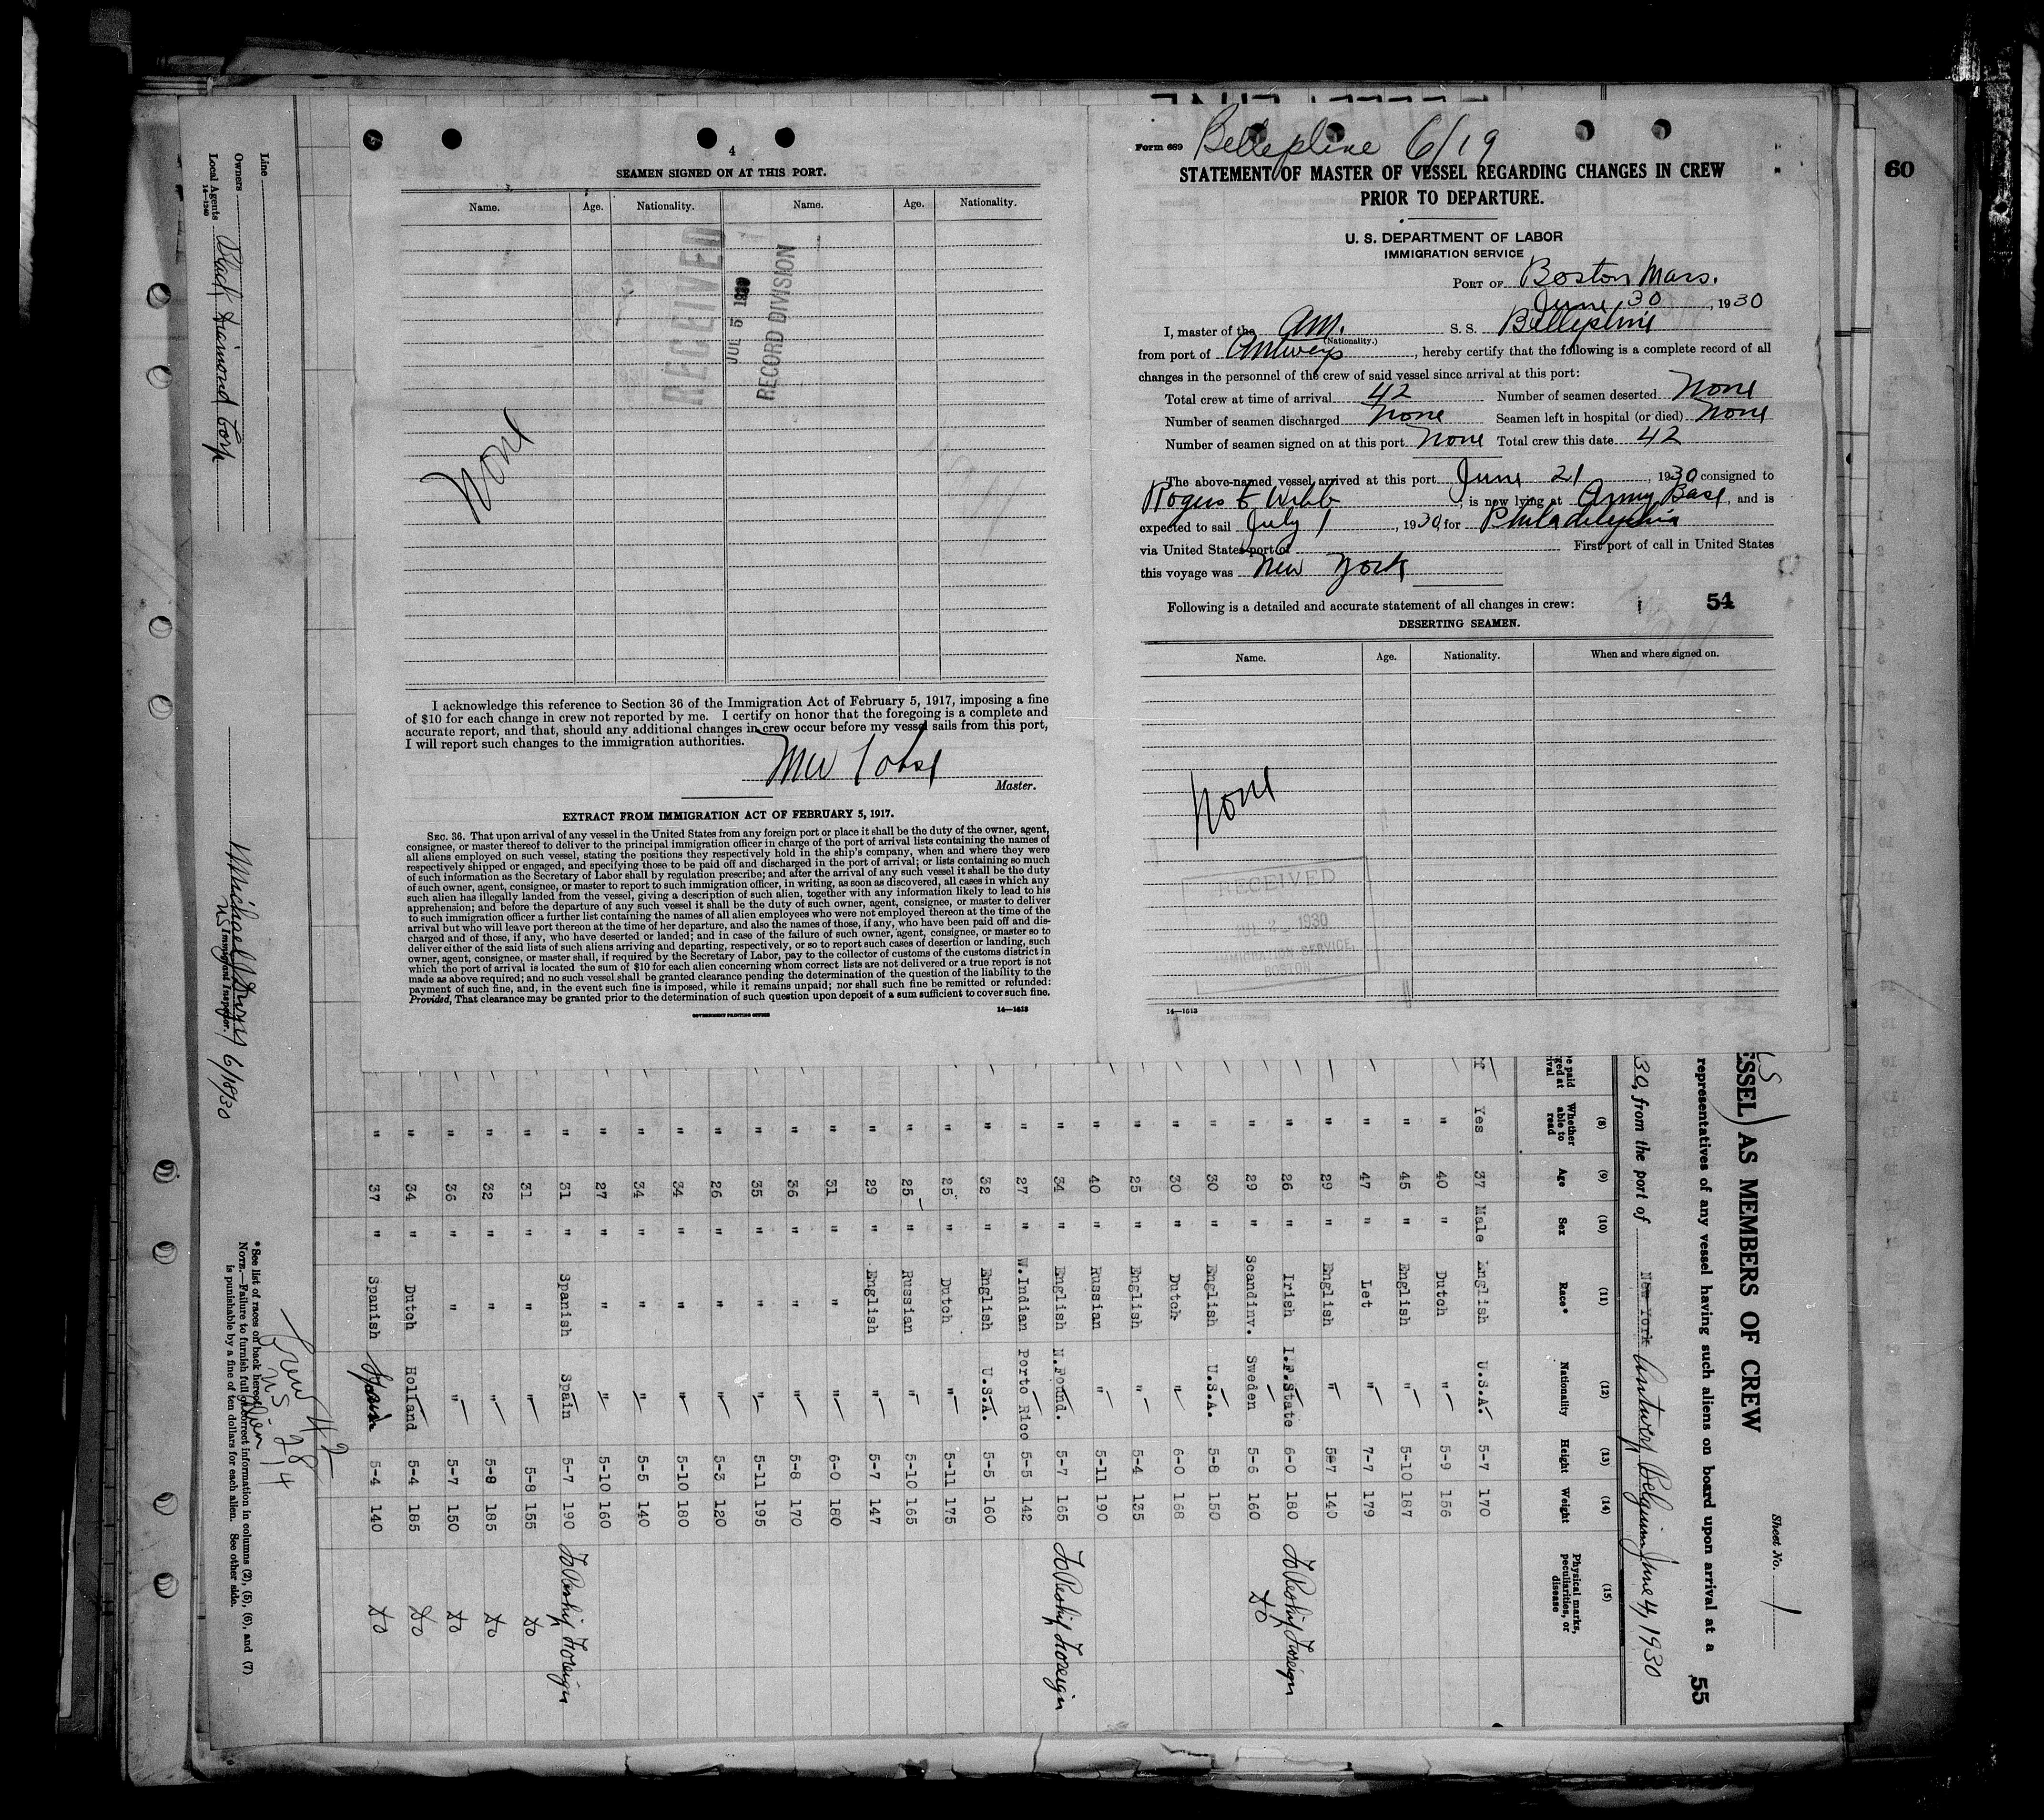 60
4
SEAMEN SIGNED ON AT THIS PORT.
Name. Age. Nationality. Name. Age. Nationality.
RECEIVED
JUL 5 1930
RECORD DIVISION
None
I acknowledge this reference to Section 36 of the Immigration Act of February 5, 1917, imposing a fine
of $10 for each change in crew not reported by me. I certify on honor that the foregoing is a complete and
accurate report, and that, should any additional changes in crew occur before my vessel sails from this port,
I will report such changes to the immigration authorities.
Master.
EXTRACT FROM IMMIGRATION ACT OF FEBRUARY 5, 1917.
SEC. 36. That upon arrival of any vessel in the United States from any foreign port or place it shall be the duty of the owner, agent,
consignee, or master thereof to deliver to the principal immigration officer in charge of the port of arrival lists containing the names of
all aliens employed on such vessel, stating the positions they respectively hold in the ship's company, when and where they were
respectively shipped or engaged, and specifying those to be paid off and discharged in the port of arrival; or lists containing so much
of such information as the Secretary of Labor shall by regulation prescribe; and after the arrival of any such vessel it shall be the duty
of such owner, agent, consignee, or master to report to such immigration officer, in writing, as soon as discovered, all cases in which any
such alien has illegally landed from the vessel, giving a description of such alien, together with any information likely to lead to his
apprehension; and before the departure of any such vessel it shall be the duty of such owner, agent, consignee, or master to deliver
to such immigration officer a further list containing the names of all alien employees who were not employed thereon at the time of the
arrival but who will leave port thereon at the time of her departure, and also the names of those, if any, who have been paid off and dis-
charged and of those, if any, who have deserted or landed; and in case of the failure of such owner, agent, consignee, or master so to
deliver either of the said lists of such aliens arriving and departing, respectively, or so to report such cases of desertion or landing, such
owner, agent, consignee, or master shall, if required by the Secretary of Labor, pay to the collector of customs of the customs district in
which the port of arrival is located the sum of $10 for each alien concerning whom correct lists are not delivered or a true report is not
made as above required; and no such vessel shall be granted clearance pending the determination of the question of the liability to the
payment of such fine, and, in the event such fine is imposed, while it remains unpaid; nor shall such fine be remitted or refunded:
Provided, That clearance may be granted prior to the determination of such question upon deposit of a sum sufficient to cover such fine.
GOVERNMENT PRINTING OFFICE 14—1613
Form 689 Bellepline 6/19
STATEMENT OF MASTER OF VESSEL REGARDING CHANGES IN CREW
PRIOR TO DEPARTURE.
U. S. DEPARTMENT OF LABOR
IMMIGRATION SERVICE
PORT OF Boston Mass.
June 30, 1930
I, master of the Am. S. S. Bellepline
(Nationality.)
from port of Antwerp, hereby certify that the following is a complete record of all
changes in the personnel of the crew of said vessel since arrival at this port:
Total crew at time of arrival 42 Number of seamen deserted None
Number of seamen discharged None Seamen left in hospital (or died) None
Number of seamen signed on at this port None Total crew this date 42
The above-named vessel arrived at this port June 21, 1930 consigned to
Rogers & Webb, is now lying at Army Base, and is
expected to sail July 1, 1930, for Philadelphia
via United States port of First port of call in United States
this voyage was New York
Following is a detailed and accurate statement of all changes in crew: 54
DESERTING SEAMEN.
Name. Age. Nationality. When and where signed on.
None
RECEIVED
JUL 2 1930
IMMIGRATION SERVICE
BOSTON
14—1613
Sheet No. 1
ESSEL) AS MEMBERS OF CREW
representatives of any vessel having such aliens on board upon arrival at a 55
30, from the port of New York Antwerp Belguim June 4, 1930
(8) (9) (10) (11) (12) (13) (14) (15)
Whether able to read Age Sex Race* Nationality Height Weight Physical marks, peculiarities, or disease
Yes 37 Male English U.S.A. 5-7 170
" 40 " Dutch " 5-9 156
" 45 " English " 5-10 187
" 47 " Let " 7-7 179
" 29 " English " 5-7 140
" 26 " Irish I.F.State 6-0 180 To Reship Foreign
" 29 " Scandinv. Sweden 5-6 160 do
" 30 " English U.S.A. 5-8 150
" 30 " Dutch " 6-0 168
" 25 " English " 5-4 135
" 40 " Russian " 5-11 190
" 34 " English N.Found. 5-7 165 To Reship Foreign
" 27 " W.Indian Porto Rico 5-5 142
" 32 " English U.S.A. 5-5 160
" 25 " Dutch " 5-11 175
" 25 " Russian " 5-10 165
" 29 " English " 5-7 147
" 31 " " " 6-0 180
" 36 " " " 5-8 170
" 35 " " " 5-11 195
" 26 " " " 5-3 120
" 34 " " " 5-10 180
" 34 " " " 5-5 140
" 27 " " " 5-10 160
" 31 " Spanish Spain 5-7 190 To Reship Foreign
" 31 " " " 5-8 155 do
" 32 " " " 5-8 185 do
" 36 " " " 5-7 150 do
" 34 " Dutch Holland 5-4 185 do
" 37 " Spanish Spain 5-4 140 do
Crew 42
US 28
Alien 14
Line
Owners
Local Agents Black Diamond Corp
14—1240
Michael
US Immigrant Inspector. 6/18/30
*See list of races on back hereof.
NOTE.—Failure to furnish full or correct information in columns (2), (5), (6), and (7)
is punishable by a fine of ten dollars for each alien. See other side.